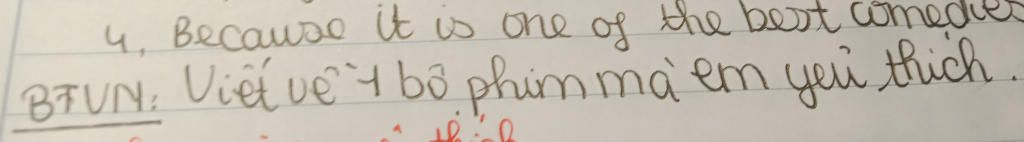 4. Because it is one of the best comedies
BTVN: Viết về 1 bộ phim mà em yêu thích.